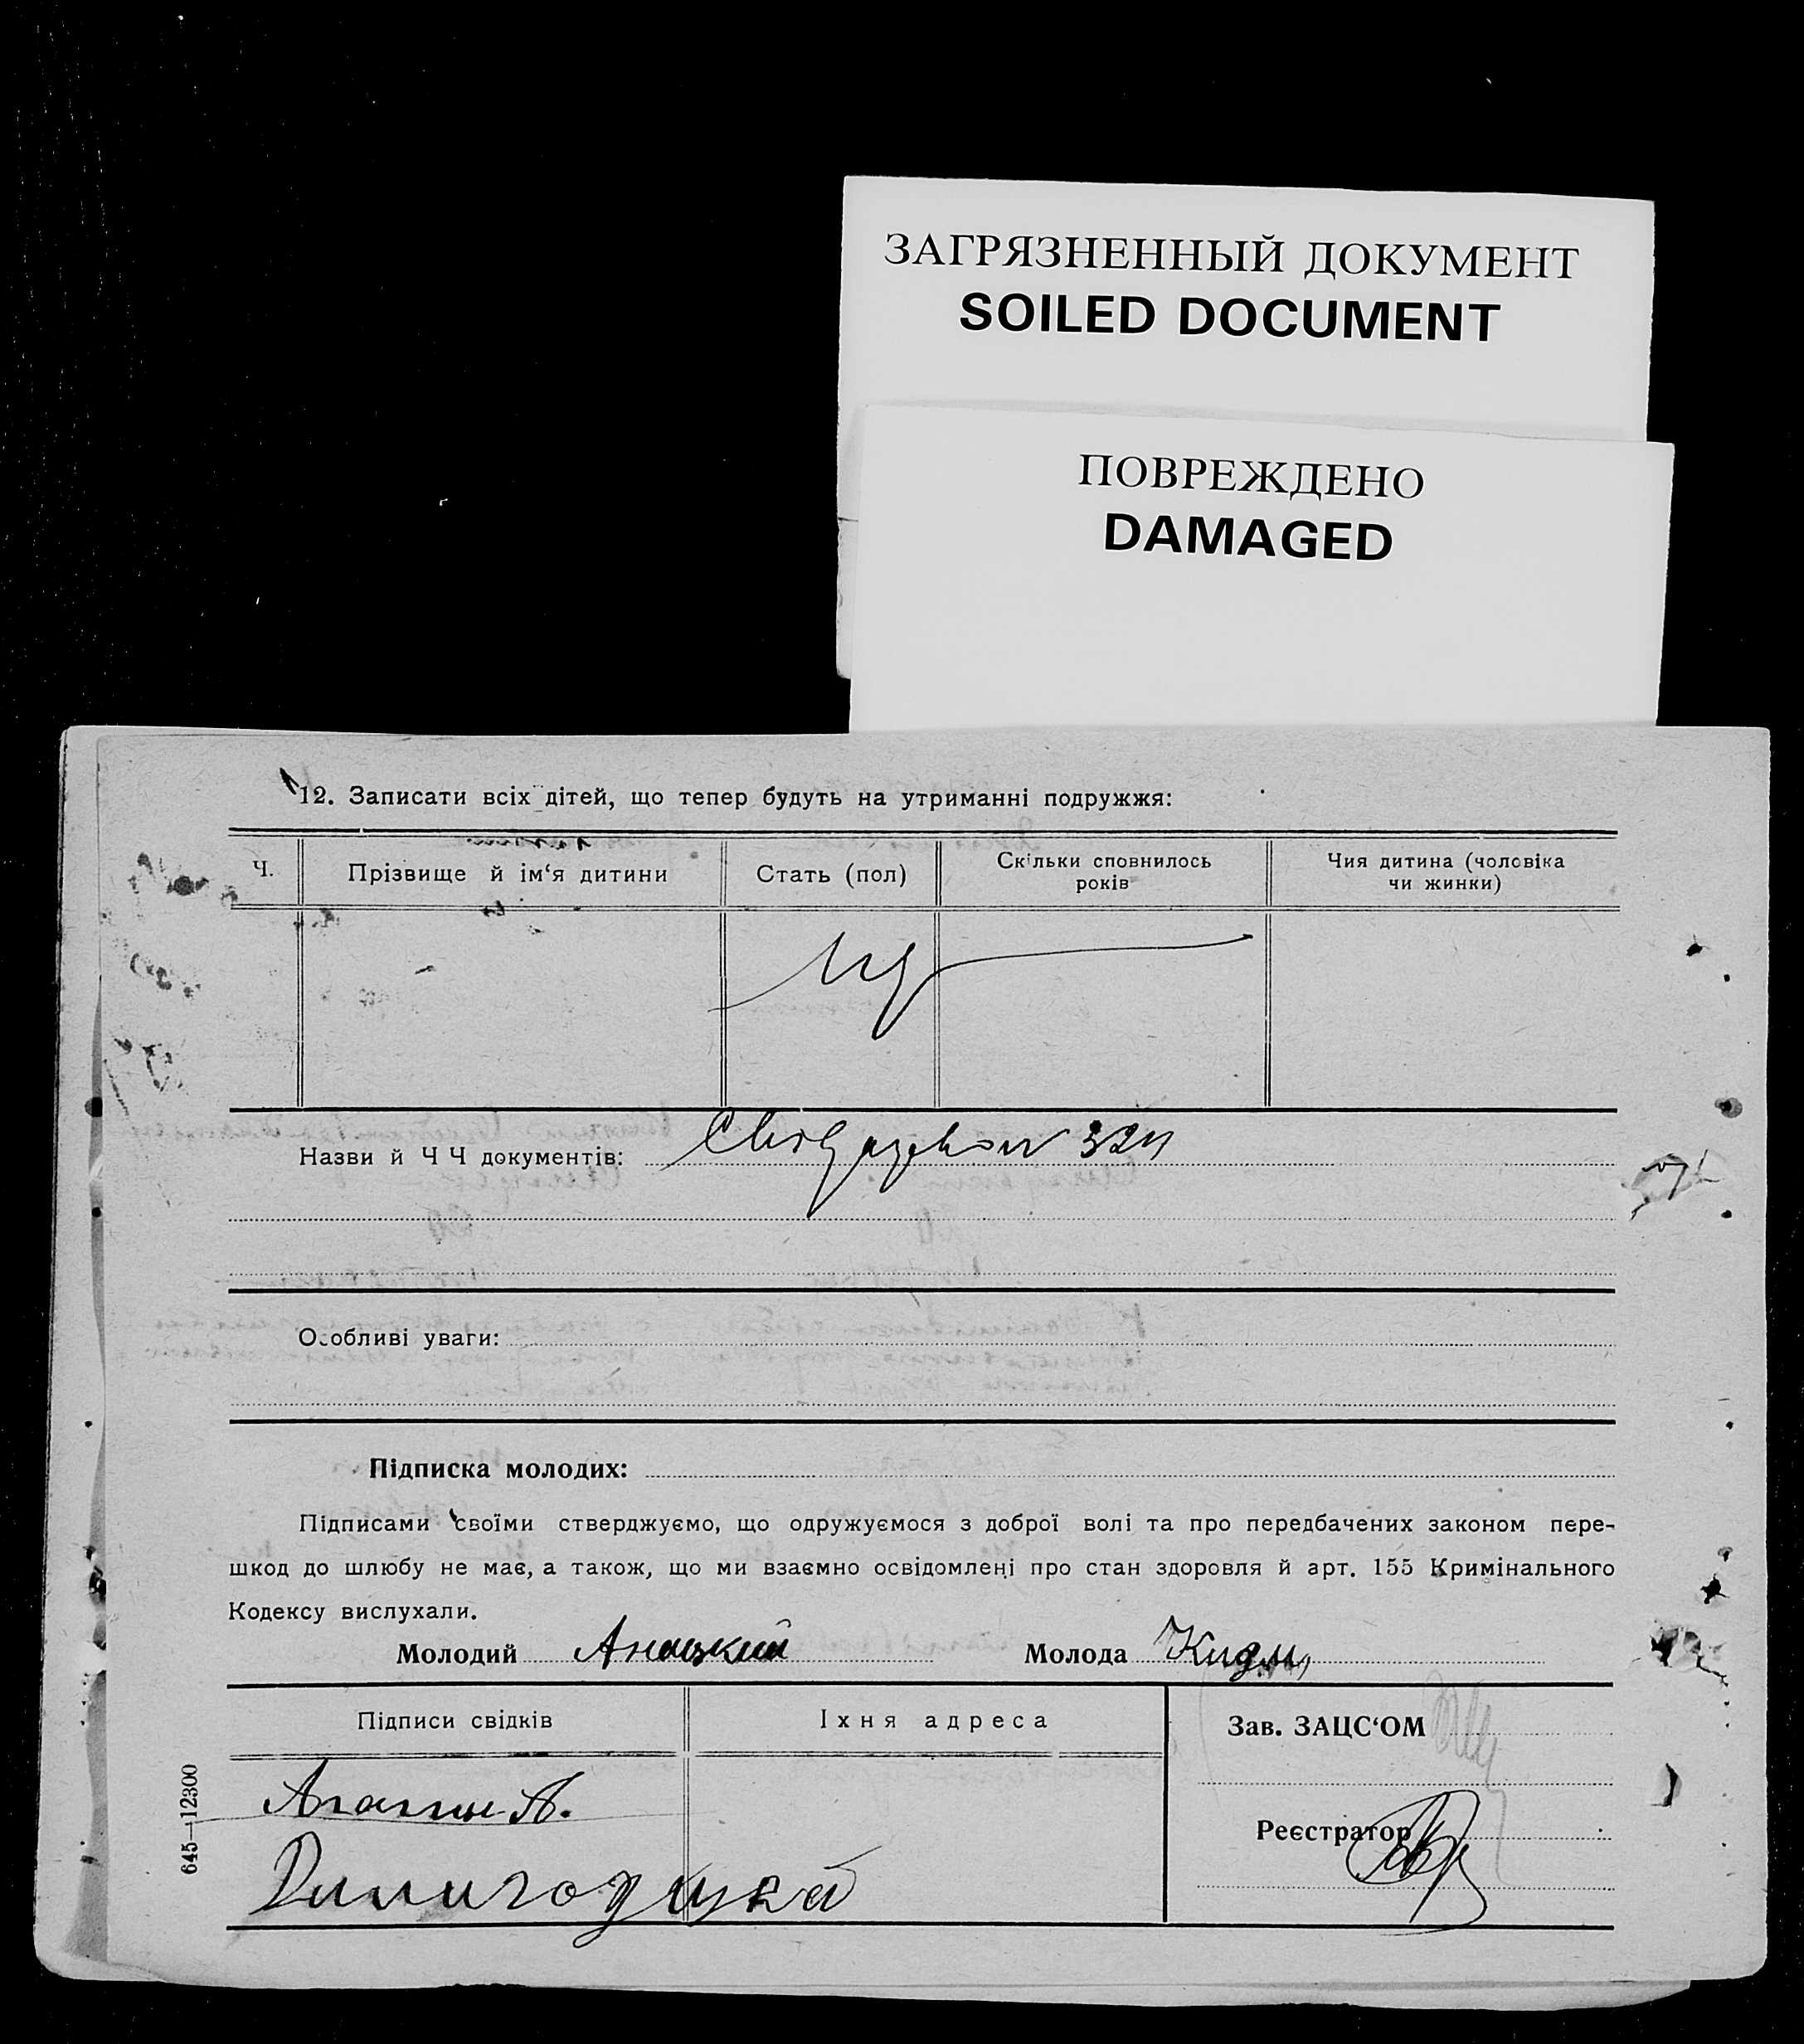 ЗАГРЯЗНЕННЫЙ ДОКУМЕНТ
SOILED DOCUMENT
ПОВРЕЖДЕНО
DAMAGED
12. Записати всіх дітей, що тепер будуть на утриманні подружжя:
Ч.
Прізвище й ім‘я дитини
Стать (пол)
Скільки сповнилось
років
Чия дитина (чоловіка
чи жинки)
Назви й Ч Ч документів:
Особливі уваги:
Підписка молодих:
Підписами своїми стверджуємо, що одружуємося з доброї волі та про передбачених законом пере-
шкод до шлюбу не має, а також, що ми взаємно освідомлені про стан здоровля й арт. 155 Кримінального
Кодексу вислухали.
Молодий
Молода
Підписи свідків
Іхня адреса
Зав. ЗАЦС‘ОМ
Реєстратор
645—12300